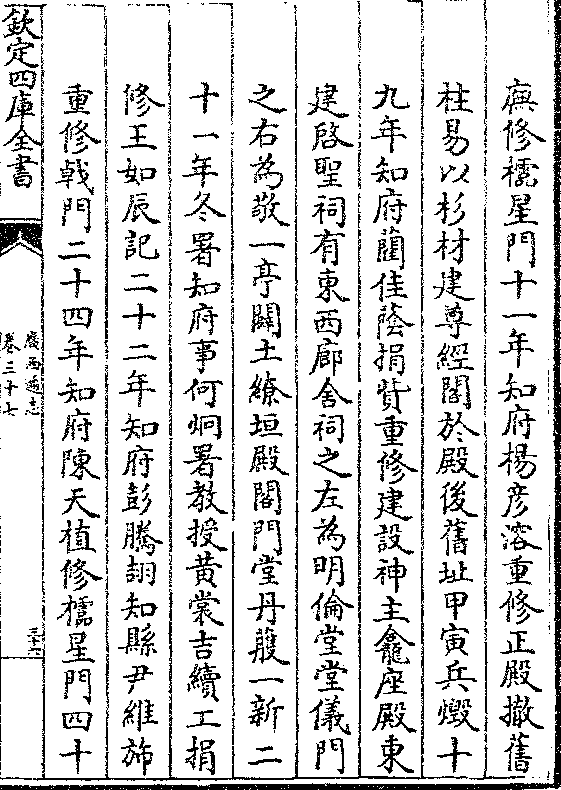 廡修櫺星門十一年知府楊彦溶重修正殿撤舊
柱易以杉材建尊經閣於殿後舊址甲寅兵燬十
九年知府藺佳蔭捐貲重修建設神主龕座殿東
建啓聖祠有東西廊舍祠之左為明倫堂堂儀門
之右為敬一亭闢土繚垣殿閣門堂丹雘一新二
十一年冬署知府事何炯署教授黄裳吉續工捐
修王如辰記二十二年知府彭騰翃知縣尹維旆
重修戟門二十四年知府陳天植修櫺星門四十
欽定四庫全書
廣西通志
卷三十七